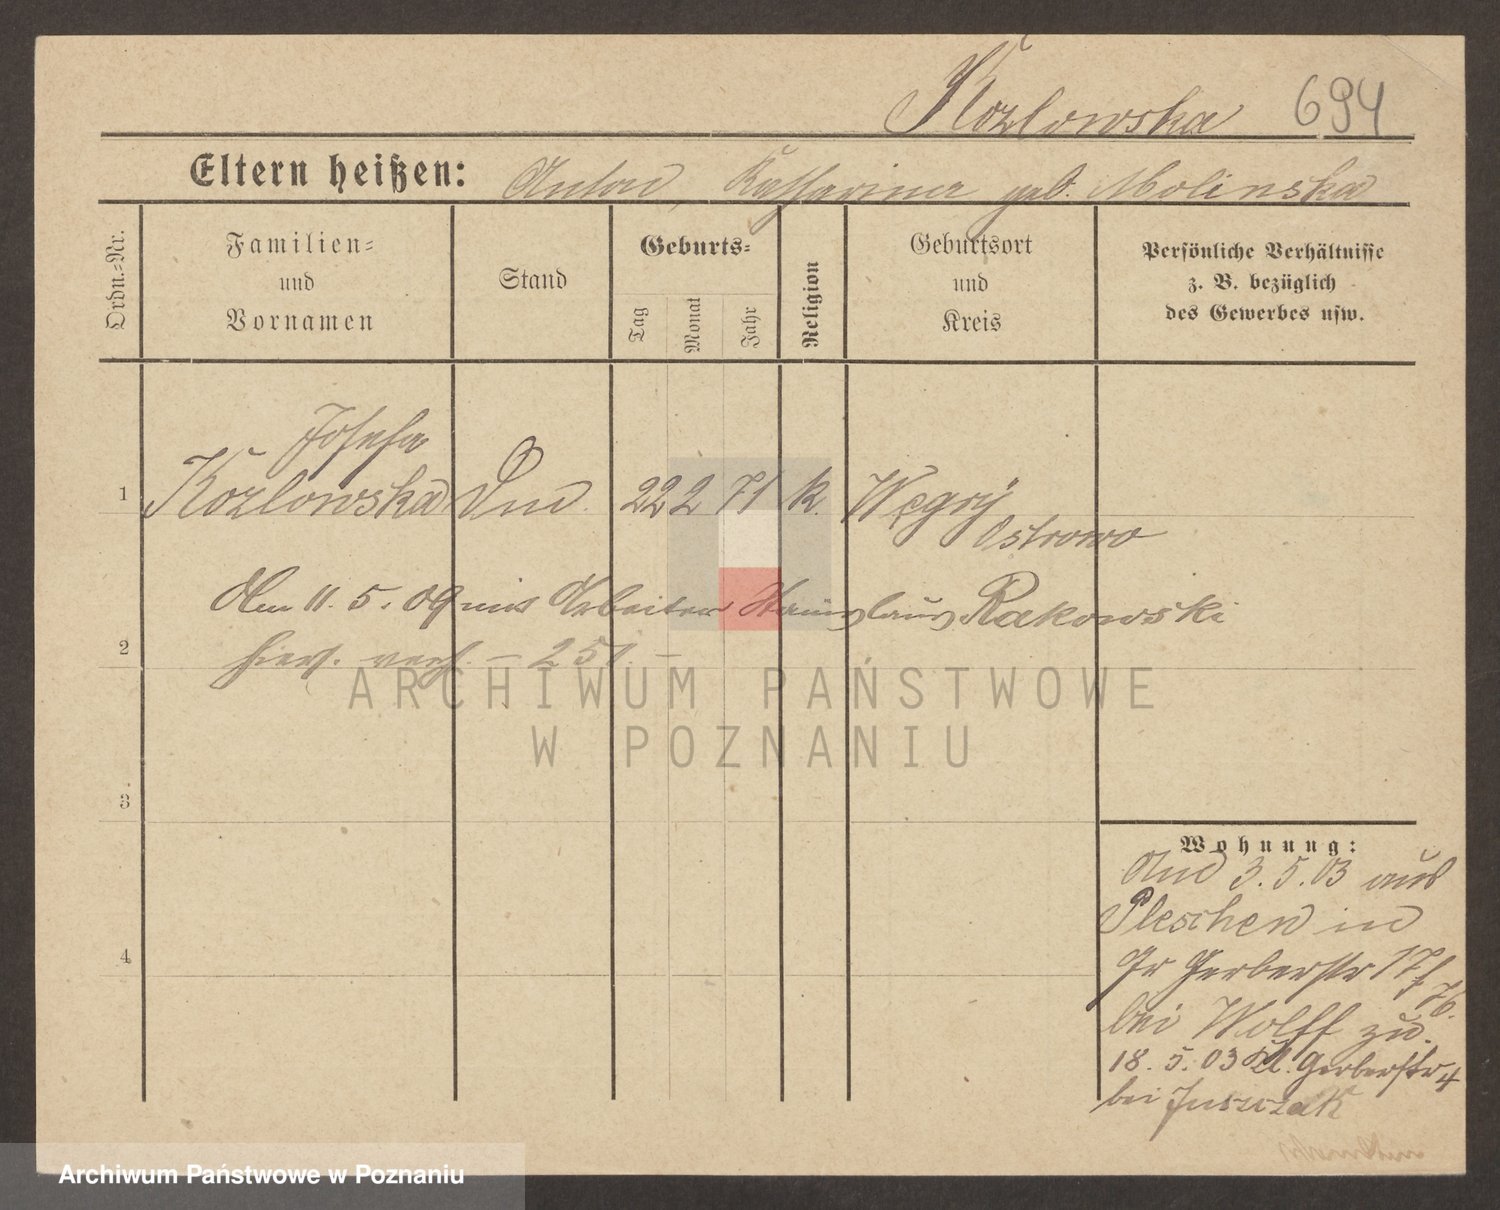 Kozlowska 694
Eltern heißen: Anton, Katharina geb. Molinska
Ordn.-Nr.
Familien-
und
Vornamen
Stand
Geburts-
Tag
Monat
Jahr
Religion
Geburtsort
und
Kreis
Persönliche Verhältnisse
z. B. bezüglich
des Gewerbes usw.
Josefa
1 Kozlowska 22 2 71 k. Węgry
Ostrowo
Am 11.5.09 mit Arbeiter Stanislaus Rakowski
2 hier verh. – 251. –
ARCHIWUM PAŃSTWOWE
W POZNANIU
3
4
Wohnung:
3.5.03 aus
Pleschen in
Gr Gerberstr 17
bei Wolff zu.
18.5.03 Kl. Gerberstr 4
bei
Archiwum Państwowe w Poznaniu